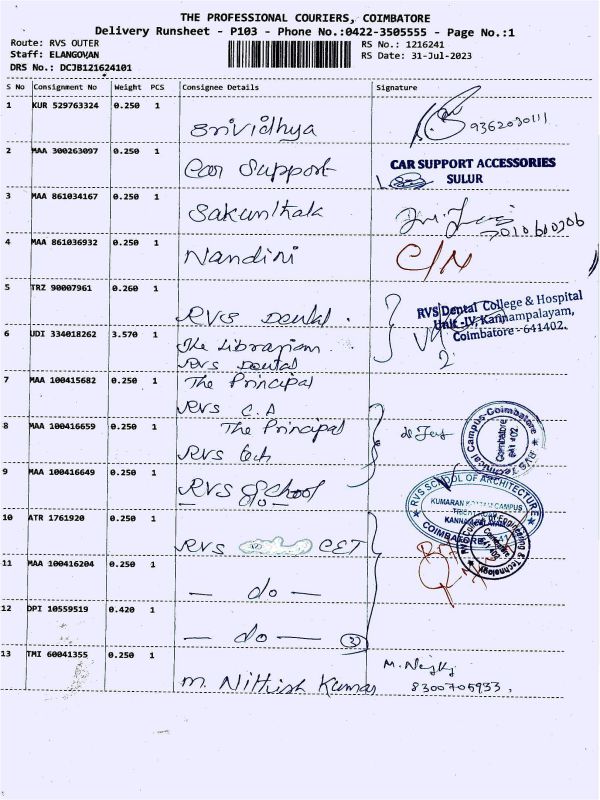 THE PROFESSIONAL COURIERS, COIMBATORE
Delivery Runsheet - P103 - Phone No.:0422-3505555 - Page No.:1
Route: RVS OUTER
Staff: ELANGOVAN
DRS No.: DCJB121624101
RS No.: 1216241
RS Date: 31-Jul-2023
S No Consignment No Weight PCS Consignee Details Signature
1 KUR 529763324 0.250 1
Srividhya 9362030111
2 MAA 300263097 0.250 1
Car Support CAR SUPPORT ACCESSORIES
SULUR
3 MAA 861034167 0.250 1
Sakunthala
4 MAA 861036932 0.250 1
Nandini C/N
5 TRZ 90007961 0.260 1
RVS Dental . RVS Dental College & Hospital
Unit -IV, Kannampalayam,
Coimbatore - 641402.
6 UDI 334018262 3.570 1
The Librarian
RVS Dental
2
7 MAA 100415682 0.250 1
The Principal
RVS C.A
8 MAA 100416659 0.250 1
The Principal
RVS Tech
RVS Technical Campus-Coimbatore
Coimbatore
641 402
9 MAA 100416649 0.250 1
RVS School
do
RVS SCHOOL OF ARCHITECTURE
KUMARAN KOTTAM CAMPUS
COIMBATORE
10 ATR 1761920 0.250 1
RVS CET
11 MAA 100416204 0.250 1
— do —
12 DPI 10559519 0.420 1
— do — 3
13 TMI 60041355 0.250 1
M. Nithish Kumar
8300705933,